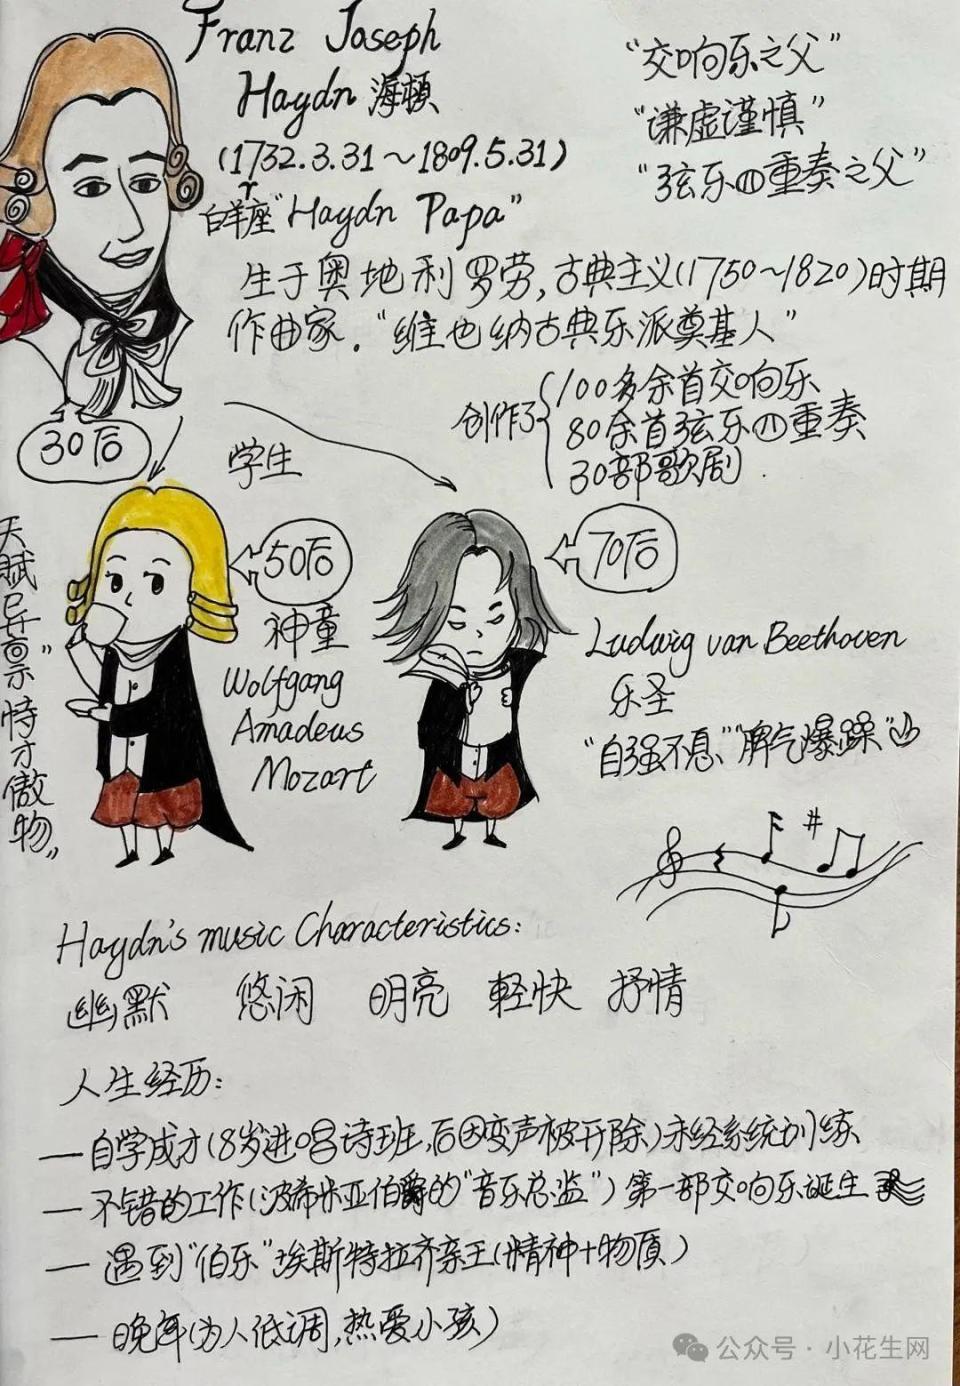 Franz Joseph
Haydn 海顿
(1732.3.31～1809.5.31)
白羊座"Haydn Papa"
"交响乐之父"
"谦虚谨慎"
"弦乐四重奏之父"
生于奥地利罗劳,古典主义(1750～1820)时期
作曲家."维也纳古典乐派奠基人"
创作了
100多余首交响乐
80余首弦乐四重奏
30部歌剧
30后
学生
天赋异禀"恃才傲物"
50后
神童
Wolfgang
Amadeus
Mozart
70后
Ludwig van Beethoven
乐圣
"自强不息""脾气爆躁"
Haydn's music Characteristics:
幽默 悠闲 明亮 轻快 抒情
人生经历:
—自学成才(8岁进唱诗班,后因变声被开除)未经系统训练
—不错的工作(波希米亚伯爵的"音乐总监")第一部交响乐诞生
—遇到"伯乐"埃斯特拉齐亲王(精神+物质)
—晚年(为人低调,热爱小孩)
公众号·小花生网